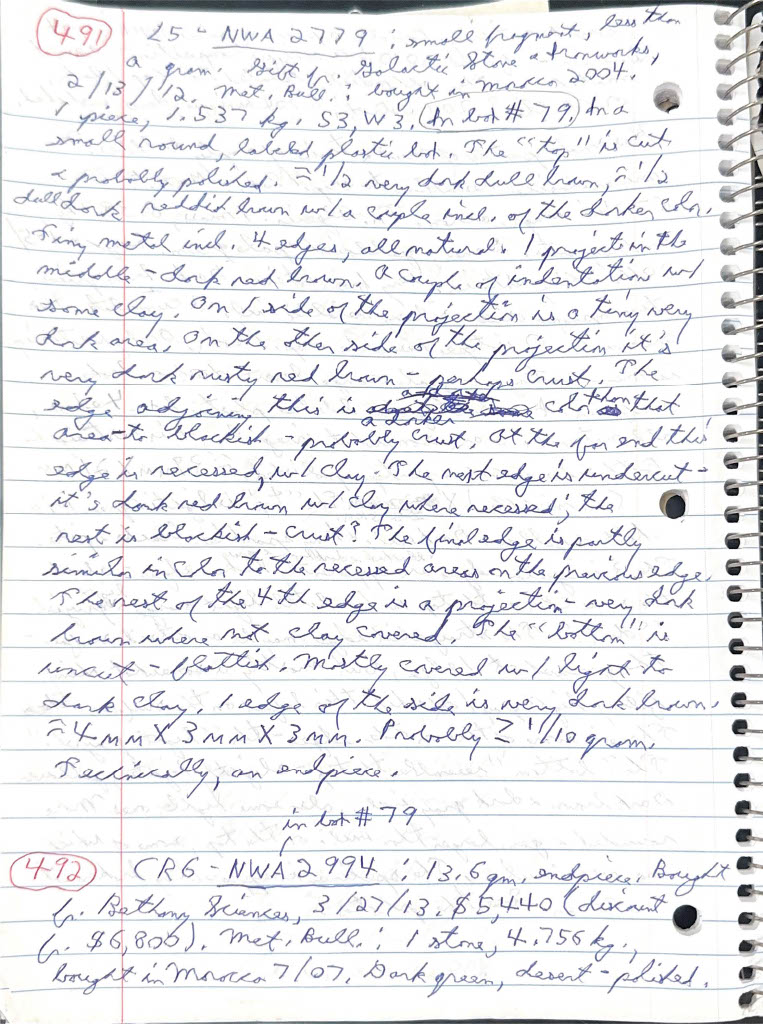 491 L5 - NWA 2779 : small fragment, less than
a gram. Gift fr. Galactic Stone & Ironworks,
2/13/12. Met. Bull. : bought in Morocco 2004.
1 piece, 1.537 kg. S3, W3. (In box # 79.) In a
small round, labeled plastic box. The "top" is cut
& probably polished. ≈ 1/2 very dark dull brown, ≈ 1/2
dull dark reddish brown w/ a couple incl. of the darker color.
Tiny metal incl. 4 edges, all natural. 1 projects in the
middle - dark red brown. A couple of indentations w/
some clay. On 1 side of the projection is a tiny very
dark area, on the other side of the projection it's
very dark rusty red brown - perhaps crust. The
edge adjoining this is a darker color than that
area - to blackish - probably crust. At the far end this
edge is recessed, w/ clay. The next edge is undercut -
it's dark red brown w/ clay where recessed; the
rest is blackish - crust? The final edge is partly
similar in color to the recessed areas on the previous edge.
The rest of the 4th edge is a projection - very dark
brown where not clay covered. The "bottom" is
uncut - flattish. Mostly covered w/ light to
dark clay. 1 edge of the side is very dark brown.
≈ 4mm X 3mm X 3mm. Probably ≥ 1/10 gram.
Technically, an endpiece.
in box # 79
492 CR6 - NWA 2994 : 13.6 gm. endpiece. Bought
fr. Bethany Sciences, 3/27/13. $5,440 (discount
fr. $6,800). Met. Bull. : 1 stone, 4.756 kg.,
bought in Morocco 7/07. Dark green, desert-polished.